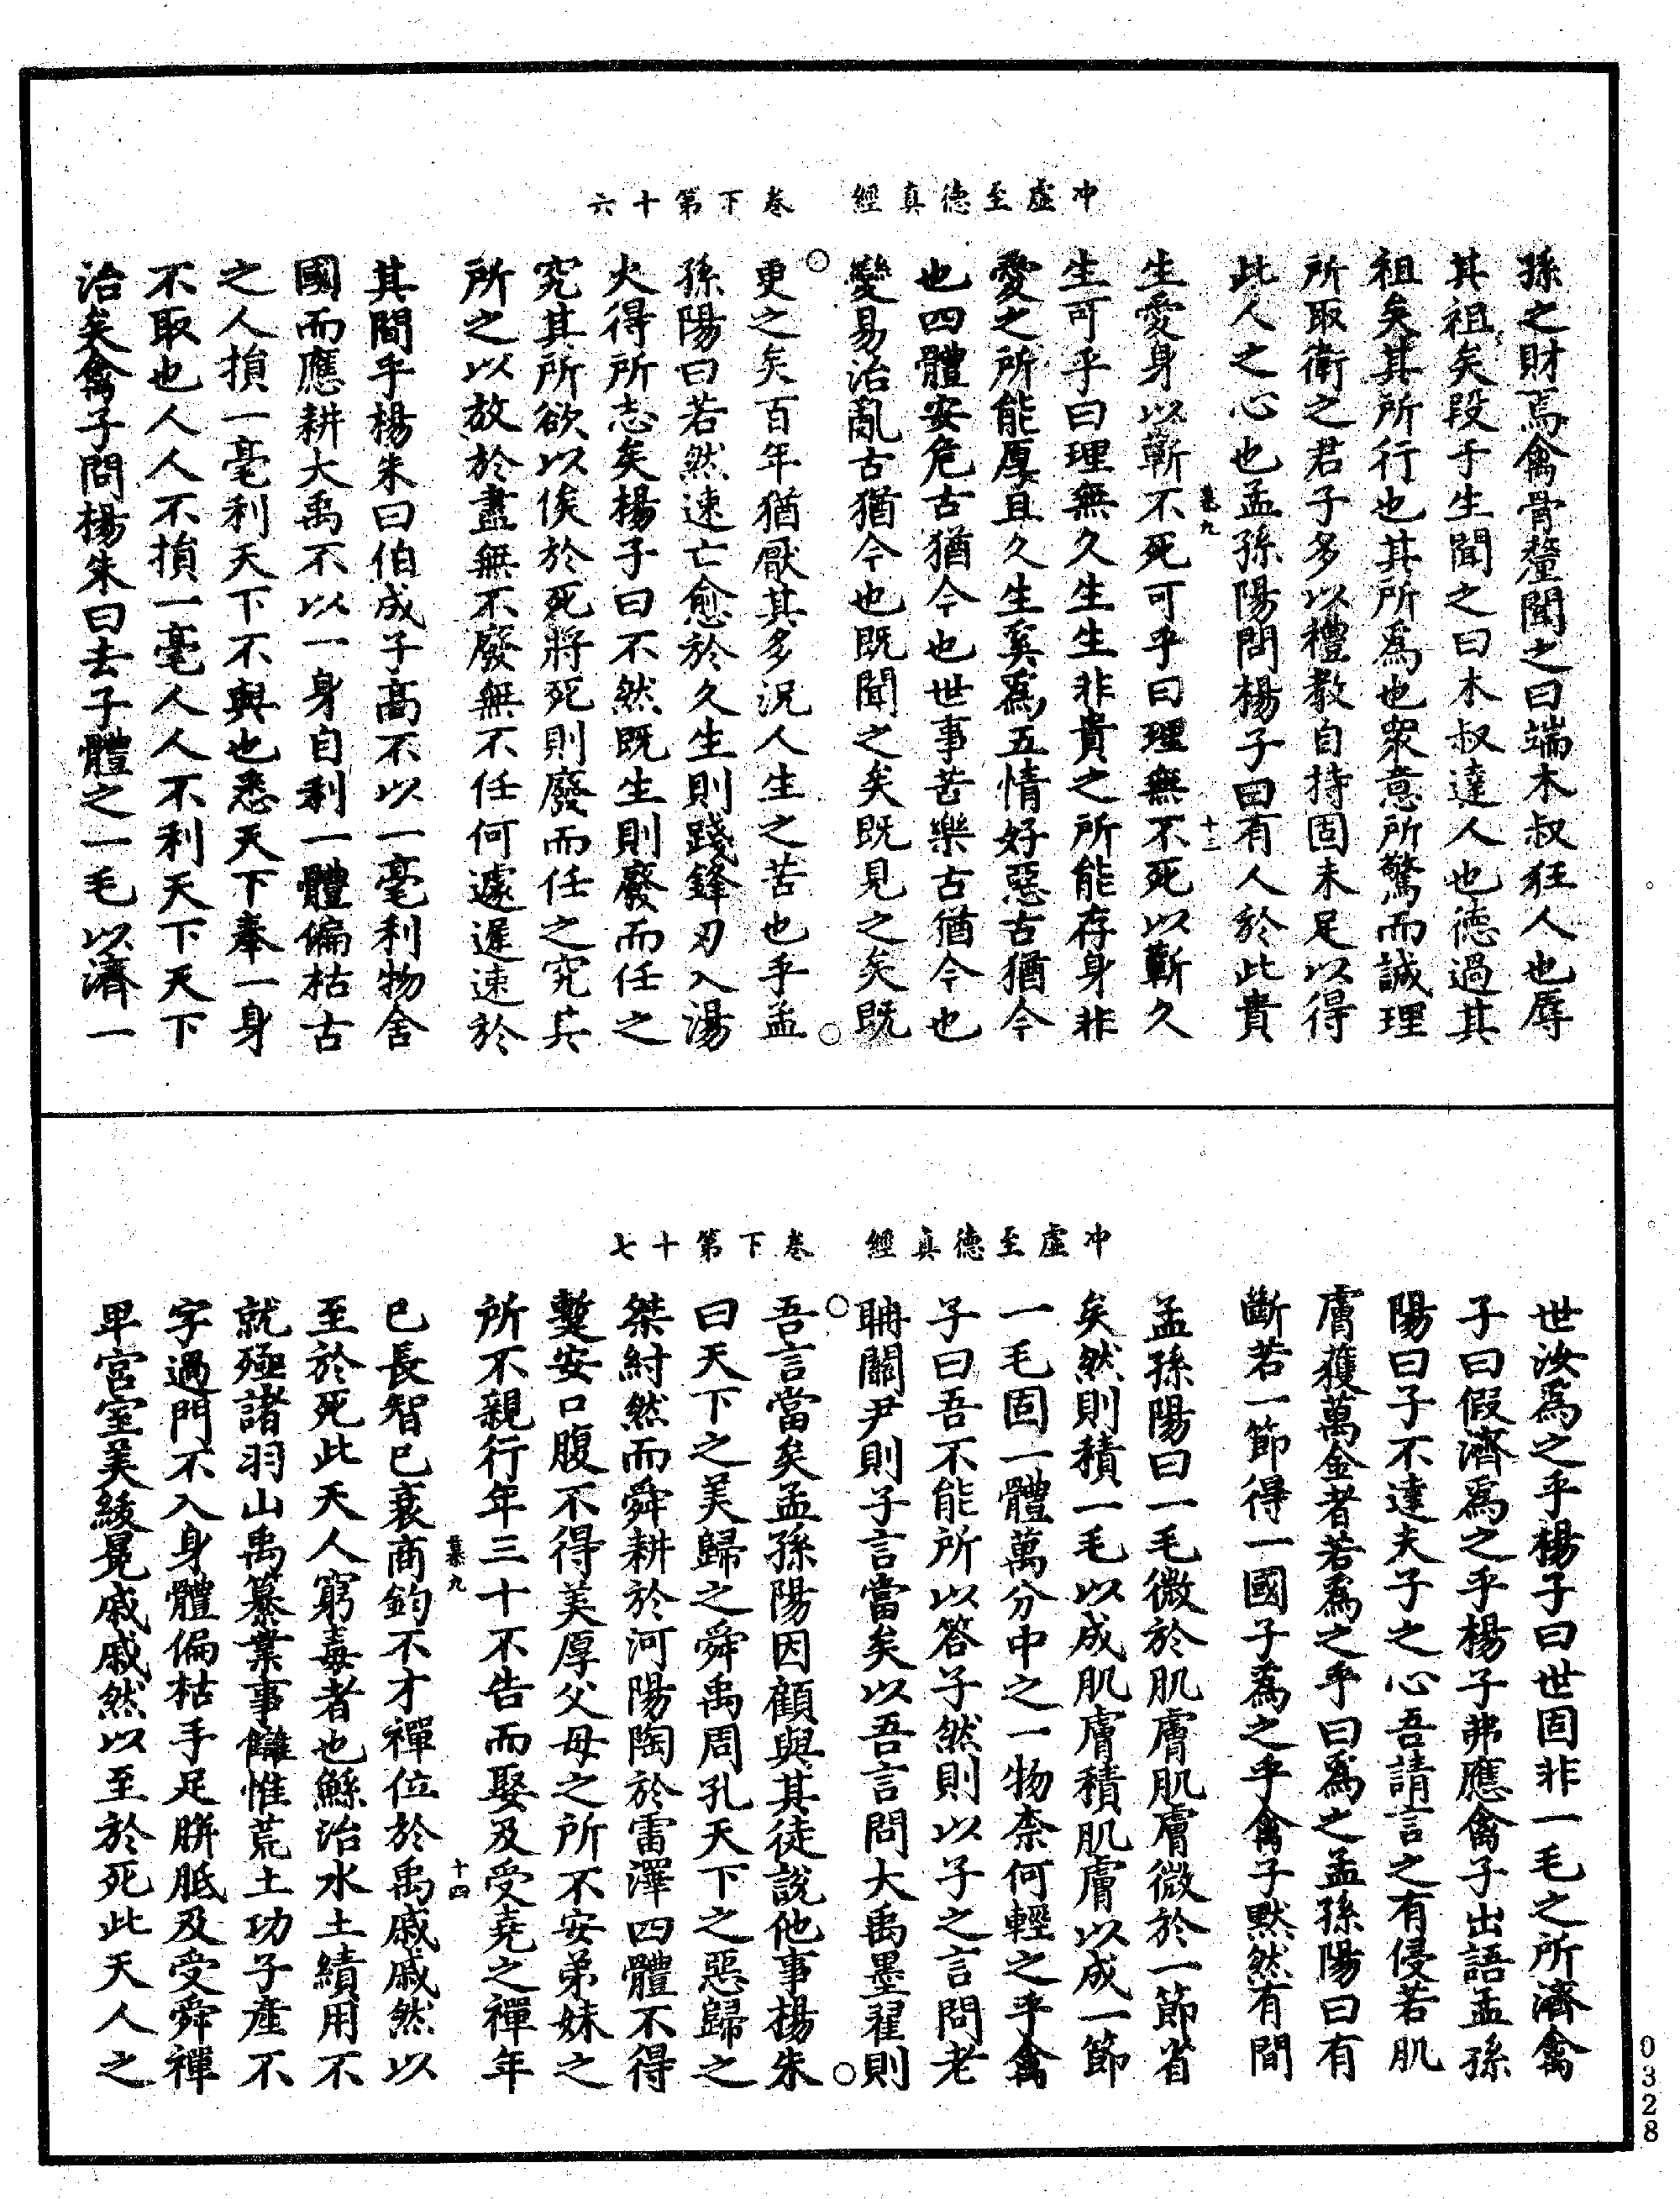 冲虛至德真經 卷下第十六
孫之財焉禽骨釐聞之曰端木叔狂人也辱
其祖矣段干生聞之曰木叔達人也德過其
祖矣其所行也其所爲也衆意所驚而誠理
所取衛之君子多以禮教自持固未足以得
此人之心也孟孫陽問楊子曰有人於此貴
慕九 十三
生愛身以蘄不死可乎曰理無不死以蘄久
生可乎曰理無久生生非貴之所能存身非
愛之所能厚且久生奚爲五情好惡古猶今
也四體安危古猶今也世事苦樂古猶今也
變易治亂古猶今也既聞之矣既見之矣既
更之矣百年猶厭其多况人生之苦也乎孟
孫陽曰若然速亡愈於久生則踐鋒刃入湯
火得所志矣楊子曰不然既生則廢而任之
究其所欲以俟於死將死則廢而任之究其
所之以放於盡無不廢無不任何遽遲速於
其閒乎楊朱曰伯成子高不以一毫利物舍
國而應耕大禹不以一身自利一體偏枯古
之人損一毫利天下不與也悉天下奉一身
不取也人人不損一毫人人不利天下天下
治矣禽子問楊朱曰去子體之一毛以濟一
冲虛至德真經 卷下第十七
世汝爲之乎楊子曰世固非一毛之所濟禽
子曰假濟爲之乎楊子弗應禽子出語孟孫
陽曰子不達夫子之心吾請言之有侵若肌
膚獲萬金者若爲之乎曰爲之孟孫陽曰有
斷若一節得一國子爲之乎禽子默然有閒
孟孫陽曰一毛微於肌膚肌膚微於一節省
矣然則積一毛以成肌膚積肌膚以成一節
一毛固一體萬分中之一物柰何輕之乎禽
子曰吾不能所以答子然則以子之言問老
聃關尹則子言當矣以吾言問大禹墨翟則
吾言當矣孟孫陽因顧與其徒說他事楊朱
曰天下之美歸之舜禹周孔天下之惡歸之
桀紂然而舜耕於河陽陶於雷澤四體不得
蹔安口腹不得美厚父母之所不安弟妹之
所不親行年三十不告而娶及受堯之禪年
慕九 十四
已長智已衰商鈞不才禪位於禹戚戚然以
至於死此天人窮毒者也鯀治水土績用不
就殛諸羽山禹纂業事讎惟荒土功子產不
字過門不入身體偏枯手足胼胝及受舜禪
卑宮室美紱冕戚戚然以至於死此天人之
0328